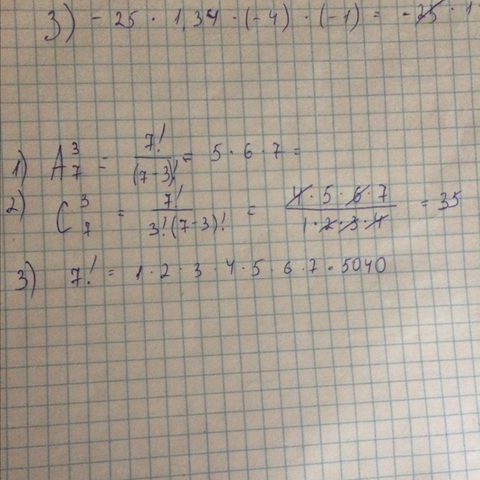 3) - 25 · 1,34 · (-4) · (-1) = - 25 · 1
1) A₇³ = 7!/(7-3)! = 5 · 6 · 7 =
2) C₇³ = 7!/3!(7-3)! = 4 · 5 · 6 · 7/1 · 2 · 3 · 4 = 35
3) 7! = 1 · 2 · 3 · 4 · 5 · 6 · 7 = 5040